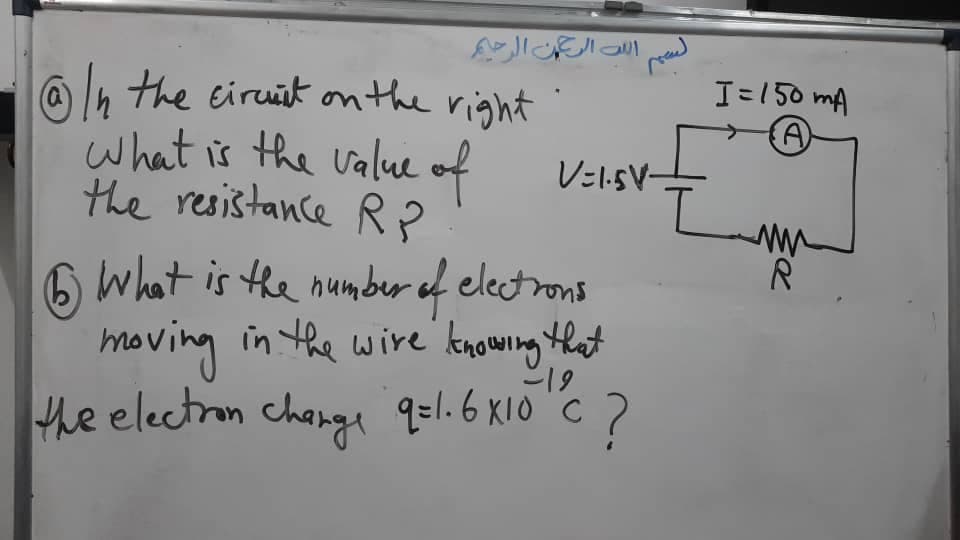 بسم الله الرحمن الرحيم
ⓐ In the circuit on the right
What is the value of
the resistance R?
I = 150 mA
A
V=1.5V
R
ⓑ What is the number of electrons
moving in the wire knowing that
the electron charge q=1.6 x10⁻¹⁹ C ?